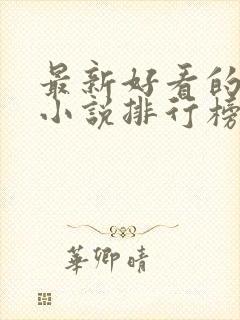 最新好看的
小说排行榜
華卿晴